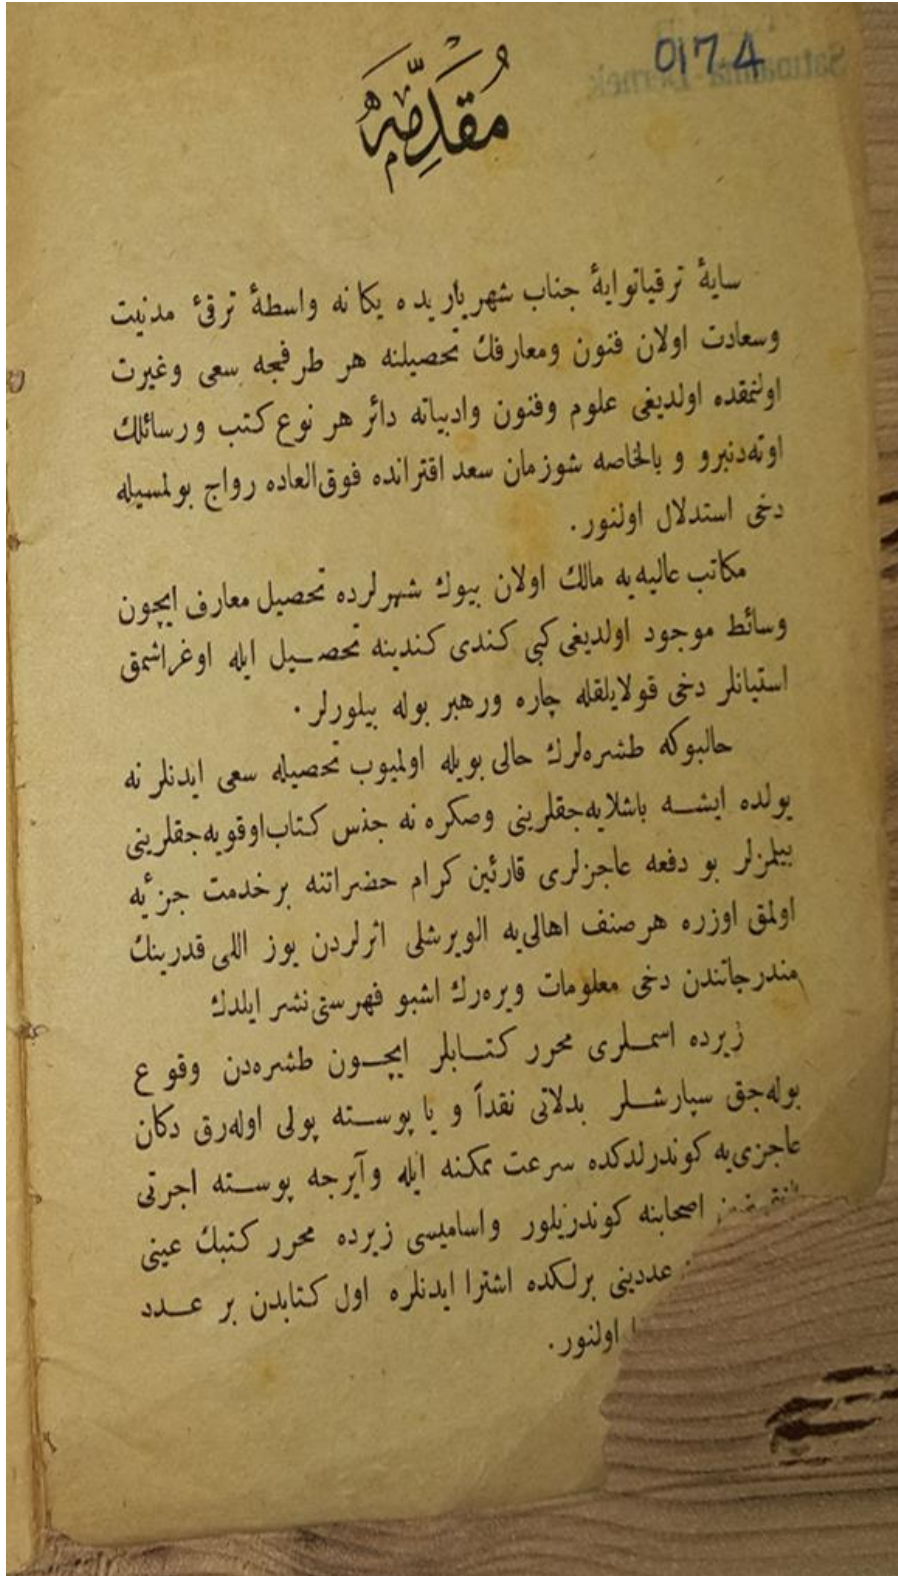 0174
مُقَدِّمَه
سایهٔ ترقیاتوایهٔ جناب شهریاریده یكانه واسطهٔ ترقیٔ مدنیت
وسعادت اولان فنون ومعارفك تحصیلنه هر طرفجه سعی وغیرت
اولنمقده اولدیغی علوم وفنون وادبیاته دائر هر نوع كتب ورسائلك
اوته‌دنبرو و بالخاصه شوزمان سعد اقترانده فوق‌العاده رواج بولمسیله
دخی استدلال اولنور.
مكاتب عالیه‌یه مالك اولان بیوك شهرلرده تحصیل معارف ایچون
وسائط موجود اولدیغی كبی كندی كندینه تحصیل ایله اوغراشمق
استیانلر دخی قولایلقله چاره ورهبر بوله بیلورلر.
حالبوكه طشره‌لرك حالی بویله اولمیوب تحصیله سعی ایدنلر نه
یولده ایشه باشلایه‌جقلرینی وصكره نه جنس كتاب‌اوقویه‌جقلرینی
بیلمزلر بو دفعه عاجزلری قارئین كرام حضراتنه برخدمت جزئیه
اولمق اوزره هرصنف اهالی‌یه الویرشلی اثرلردن یوز اللی قدرینك
مندرجاتندن دخی معلومات ویره‌رك اشبو فهرستی نشر ایلدك
زیرده اسملری محرر كتابلر ایچون طشره‌دن وقوع
بوله‌جق سپارشلر بدلاتی نقداً و یا پوسته پولی اوله‌رق دكان
عاجزی‌یه كوندرلدكده سرعت ممكنه ایله وآیرجه پوسته اجرتی
اصحابنه كوندریلور واسامیسی زیرده محرر كتبك عینی
عددینی برلكده اشترا ایدنلره اول كتابدن بر عدد
اولنور.